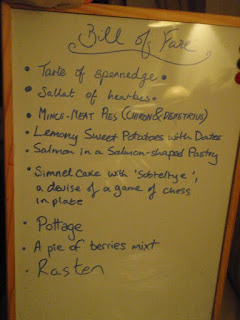 Bill of Fare
• Tarte of spennedge •
• Sallet of hearbes •
• MINCE-MEAT PIES (CHIRON & DEMETRIUS)
• Lemony Sweet Potatoes with Dates
• Salmon in a Salmon-shaped Pastry
• Simnel cake with 'Sotteltye',
a devise of a game of chess
in plate
• Pottage
• A pie of berries mixt
• Rasten